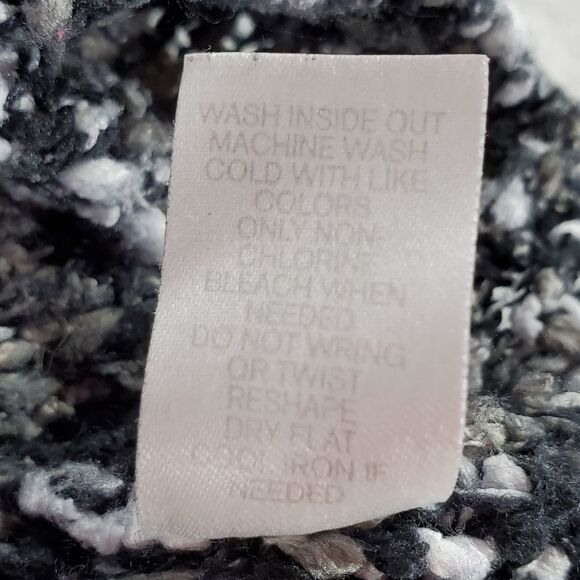 WASH INSIDE OUT
MACHINE WASH
COLD WITH LIKE
COLORS
ONLY NON-
CHLORINE
BLEACH WHEN
NEEDED
DO NOT WRING
OR TWIST
RESHAPE
DRY FLAT
COOL IRON IF
NEEDED